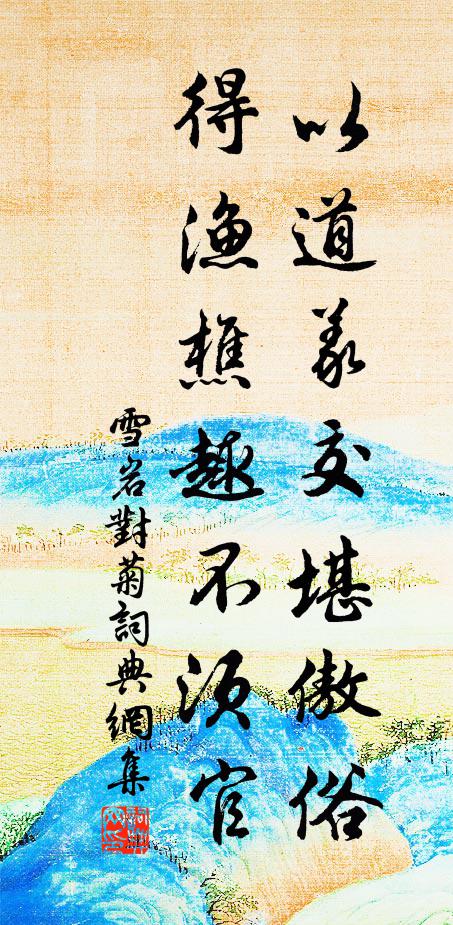 以道義交堪傲俗
得漁樵趣不須官
雪岩對菊詞典網集